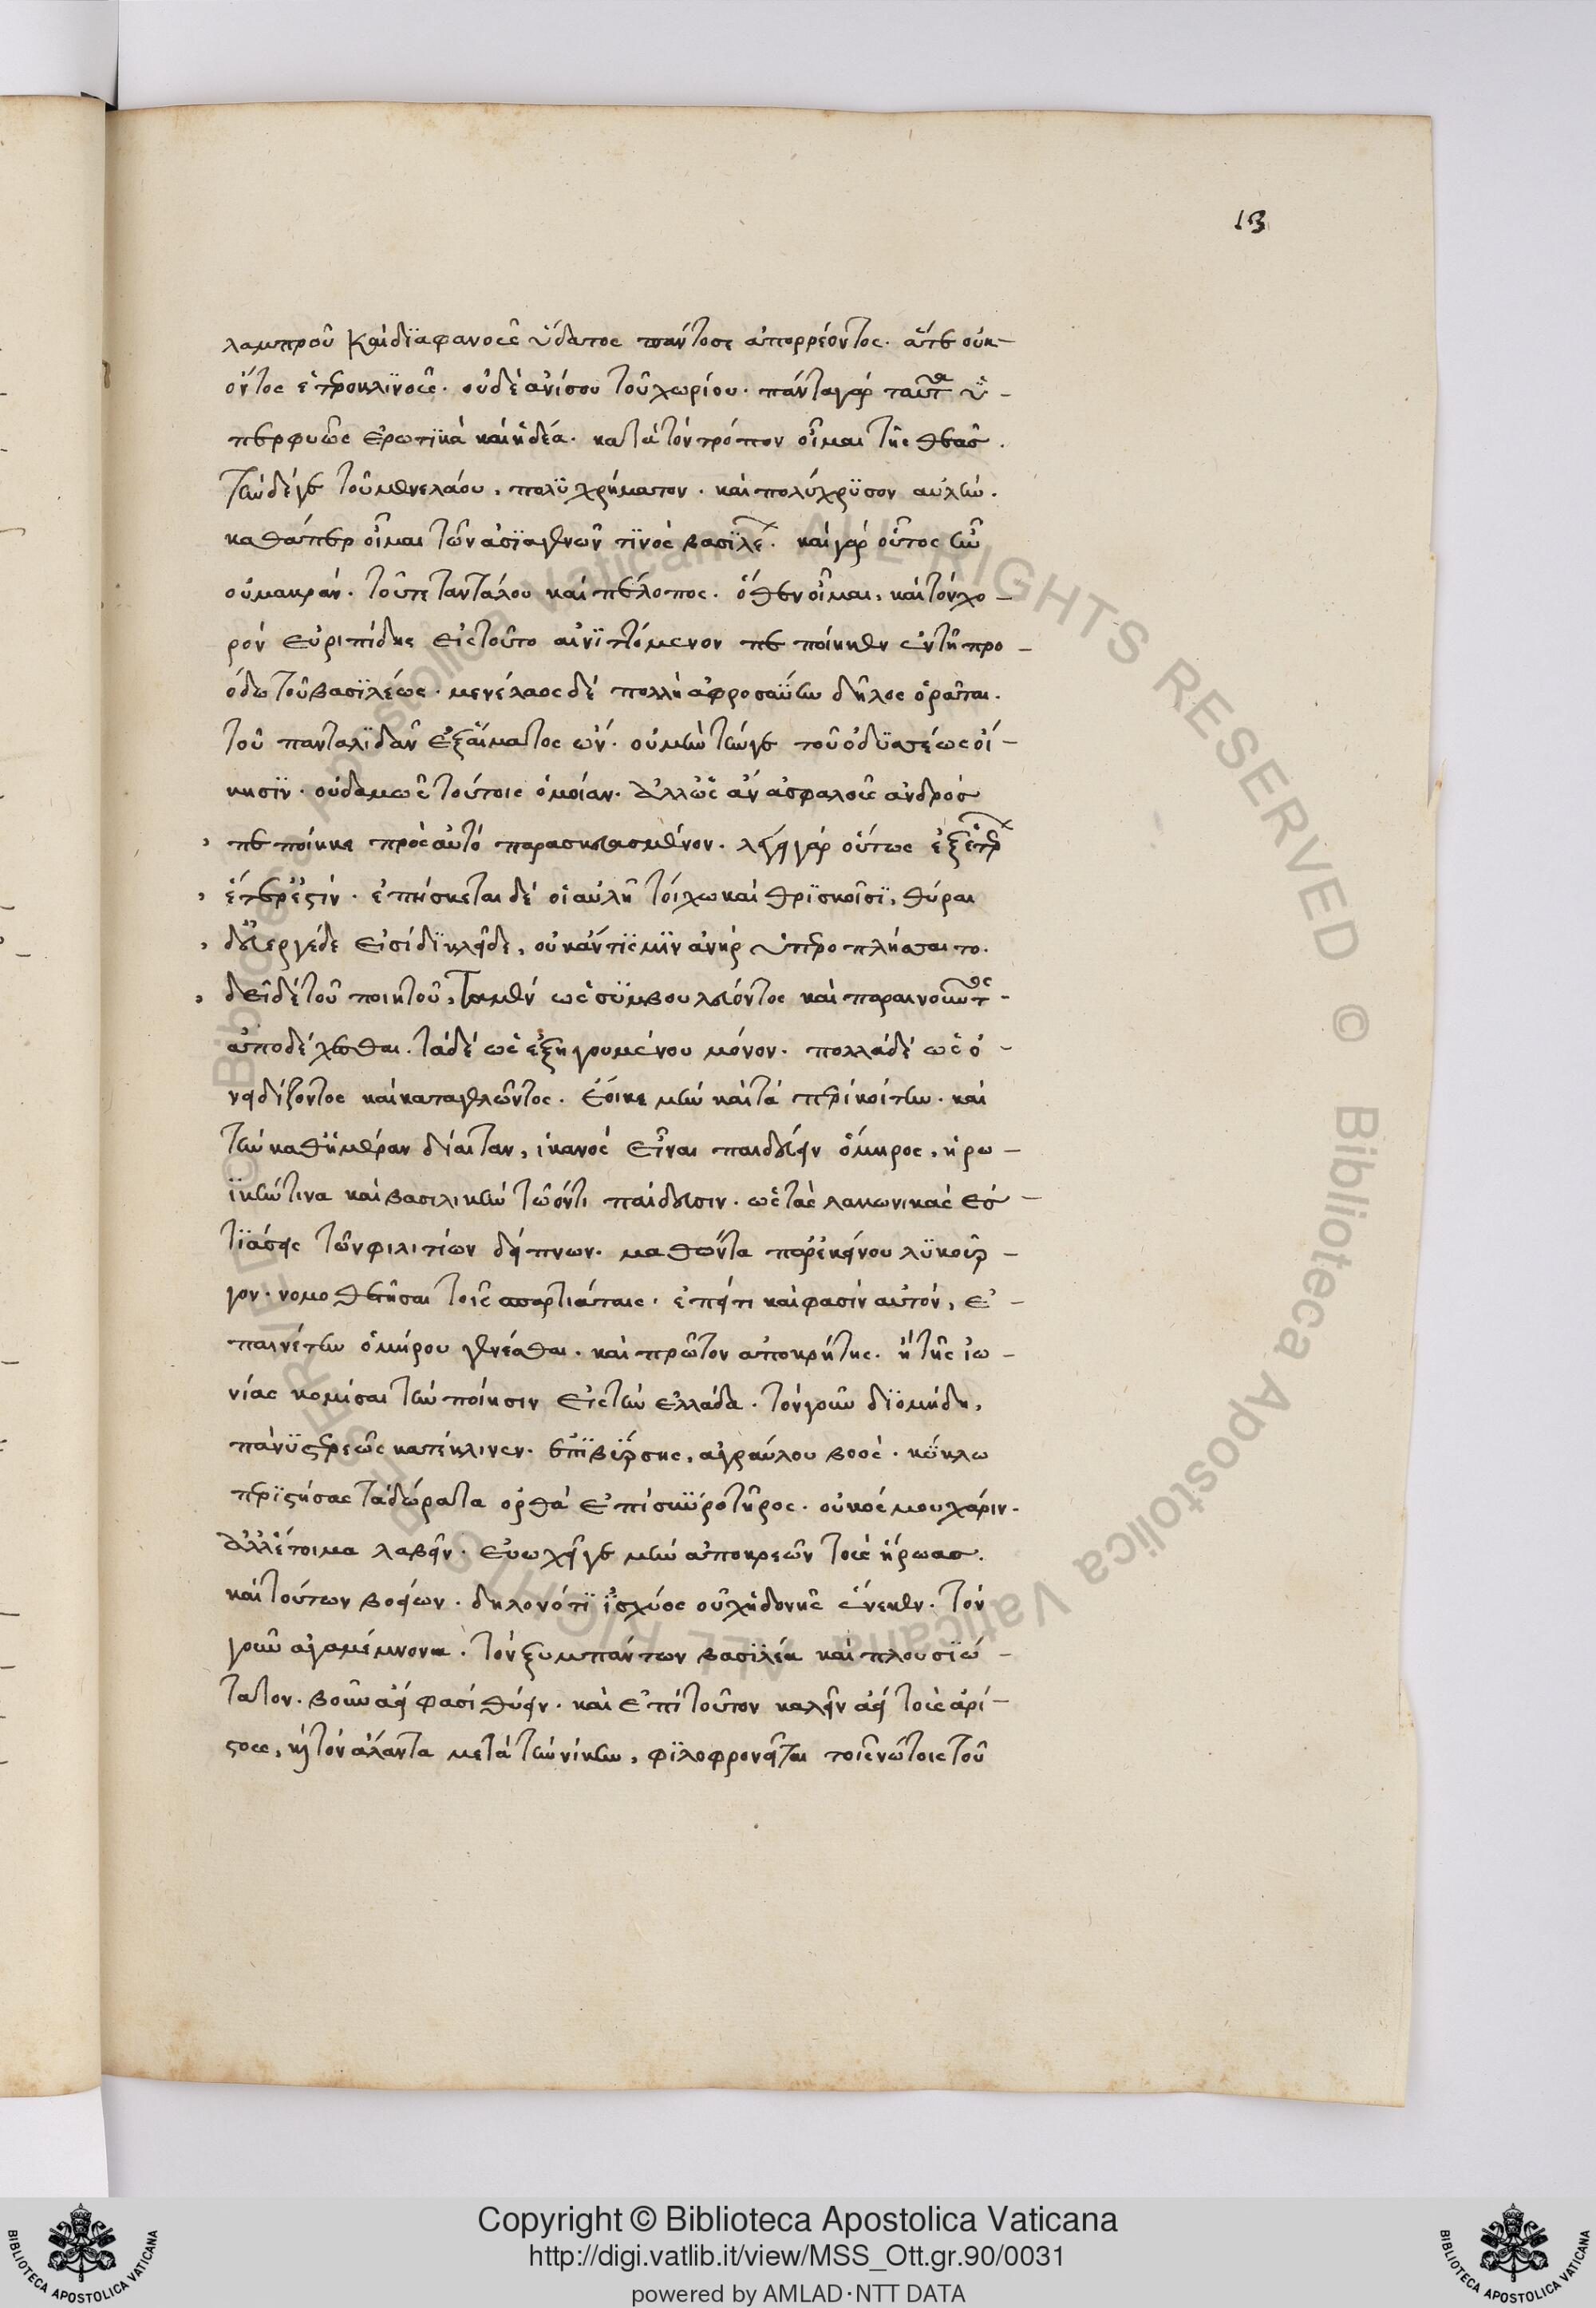 13
λαμπροῦ καὶ διαφανοῦς ὕδατος πάντοσε ἀπορρέοντος. ἅτε οὐκ-
ὄντος ἑτεροκλινοῦς. οὐδὲ ἀνίσου τοῦ χωρίου. πάντα γὰρ ταῦτα ὑ-
περφυῶς ἐρωτικὰ καὶ ἡδέα. κατὰ τὸν τρόπον οἶμαι τῆς θεᾶς.
τὴν δέ γε τοῦ μενελάου, πολυχρήματον. καὶ πολύχρυσον αὐλήν.
καθάπερ οἶμαι τῶν ἀσιαγενῶν τινὸς βασιλέων. καὶ γὰρ οὗτος ἦν
οὐ μακράν. τοῦτε ταντάλου καὶ πέλοπος. ὅθεν οἶμαι, καὶ τὸν χο-
ρὸν εὐριπίδης εἰς τοῦτο αἰνιττόμενον πεποίηκεν ἐν τῇ προ-
όδω τοῦ βασιλέως. μενέλαος δὲ πολλὴ ἀφροσαύνη δῆλος ὁρᾶται.
τοῦ πανταλιδᾶν ἐξαίματος ὤν. οὐ μὴν τήν γε τοῦ ὀδυσσέως οἴ-
κησιν. οὐδαμῶς τούτοις ὁμοίαν. ἀλλ' ὡς ἂν ἀσφαλοῦς ἀνδρὸς
πεποίηκε πρὸς αὐτὸ παρασκευασμένον. λέγει γὰρ οὕτως ἐξ ἑτέρων
ἕτερ' ἐστίν. ἐπήσκεται δέ οἱ αὐλὴ τοίχω καὶ θρισκοῖσι, θύραι
δ' εὐεργέδε εἰσὶ δικλῇδε, οὐκ ἄν τίς μιν ἀνὴρ ὑπεροπλήσαιτο.
δεῖ δὲ τοῦ ποιητοῦ, τὰ μὲν ὡς συμβουλεύοντος καὶ παραινοῦντος-
ἀποδέχεσθαι. τὰ δὲ ὡς ἐξηγουμένου μόνον. πολλὰ δὲ ὡς ὀ-
νειδίζοντος καὶ καταγελῶντος. ἔοικε μὴν καὶ τὰ περὶ κοίτην. καὶ
τὴν καθημέραν δίαιταν, ἱκανὸς εἶναι παιδεύειν ὅμηρος, ἡρω-
ϊκήν τινα καὶ βασιλικὴν τῶ ὄντι παίδευσιν. ὡς τὰς λακωνικὰς ἑσ-
τιάσεις τῶν φιλιτίων δείπνων. μαθόντα παρ' ἐκείνου λυκοῦρ-
γον. νομοθετῆσαι τοῖς σπαρτιάταις. ἐπεί τι καὶ φασὶν αὐτόν, ἐ-
παινέτην ὁμήρου γενέσθαι. καὶ πρῶτον ἀπὸ κρήτης. ἢ τῆς ἰω-
νίας κομίσαι τὴν ποίησιν εἰς τὴν ἑλλάδα. τὸν γοῦν διομήδη,
πάνυ στερεῶς κατέκλινεν. ἐπὶ βύρσης, ἀγραύλου βοὸς. κύκλω
περιστήσας τὰ δώρατα ὀρθὰ ἐπὶ σαυρότῆρος. οὐ κόσμου χάριν.
ἀλλ' ἕτοιμα λαβεῖν. εὐωχεῖ γε μὴν ἀπὸ κρεῶν τοὺς ἥρωας.
καὶ τούτων βοείων. δηλονότι ἰσχύος οὐχ ἡδονῆς ἕνεκεν. τὸν
γοῦν ἀγαμέμνονα. τὸν ξυμπάντων βασιλέα καὶ πλουσιώ-
τατον. βοῦν ἀεί φασὶ θύειν. καὶ ἐπὶ τοῦτον καλεῖν ἀεὶ τοὺς ἀρί-
στους, καὶ τὸν αἴαντα μετὰ τὴν νίκην, φιλοφρονεῖται τοῖς νώτοις τοῦ
Copyright © Biblioteca Apostolica Vaticana
http://digi.vatlib.it/view/MSS_Ott.gr.90/0031
powered by AMLAD·NTT DATA